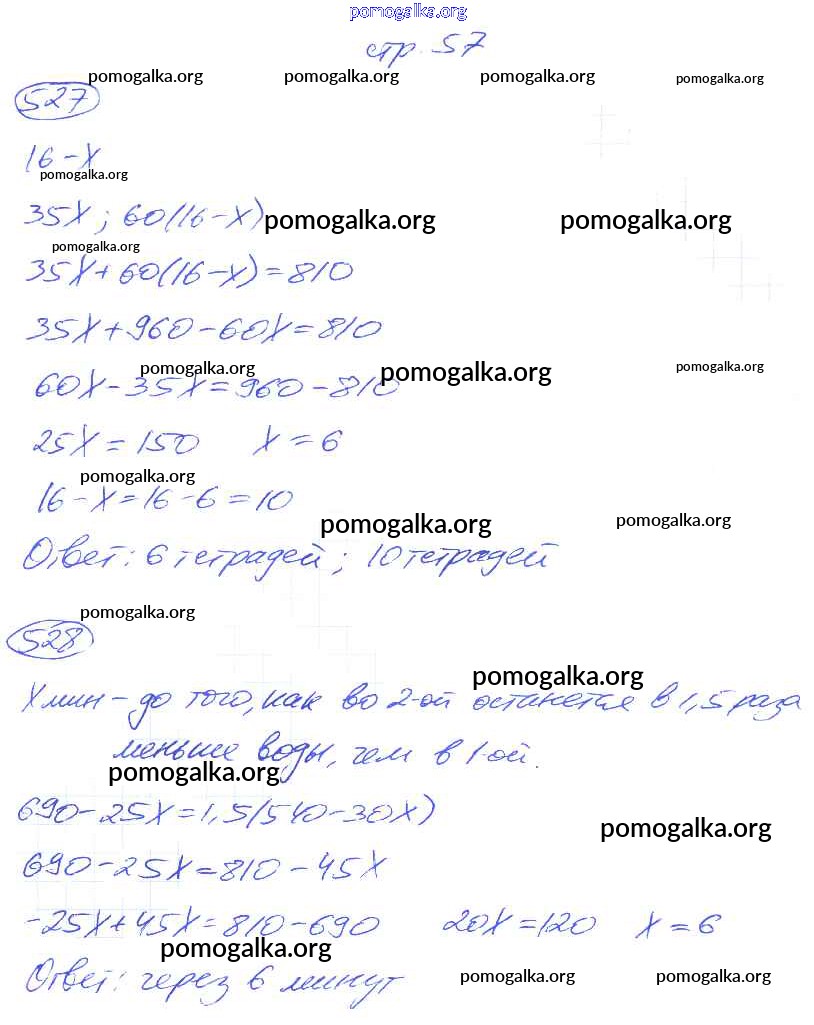 pomogalka.org
стр. 57
pomogalka.org pomogalka.org pomogalka.org pomogalka.org
527
16-x
pomogalka.org
35x; 60(16-x) pomogalka.org pomogalka.org
pomogalka.org
35x+60(16-x)=810
35x+960-60x=810
pomogalka.org pomogalka.org pomogalka.org
60x-35x=960-810
25x=150 x=6
pomogalka.org
16-x=16-6=10
pomogalka.org pomogalka.org
Ответ: 6 тетрадей; 10 тетрадей
pomogalka.org
528
pomogalka.org
X мин - до того, как во 2-ой останется в 1,5 раза
меньше воды, чем в 1-ой.
pomogalka.org
690-25x=1,5(540-30x)
pomogalka.org
690-25x=810-45x
-25x+45x=810-690 20x=120 x=6
pomogalka.org
Ответ: через 6 минут
pomogalka.org pomogalka.org